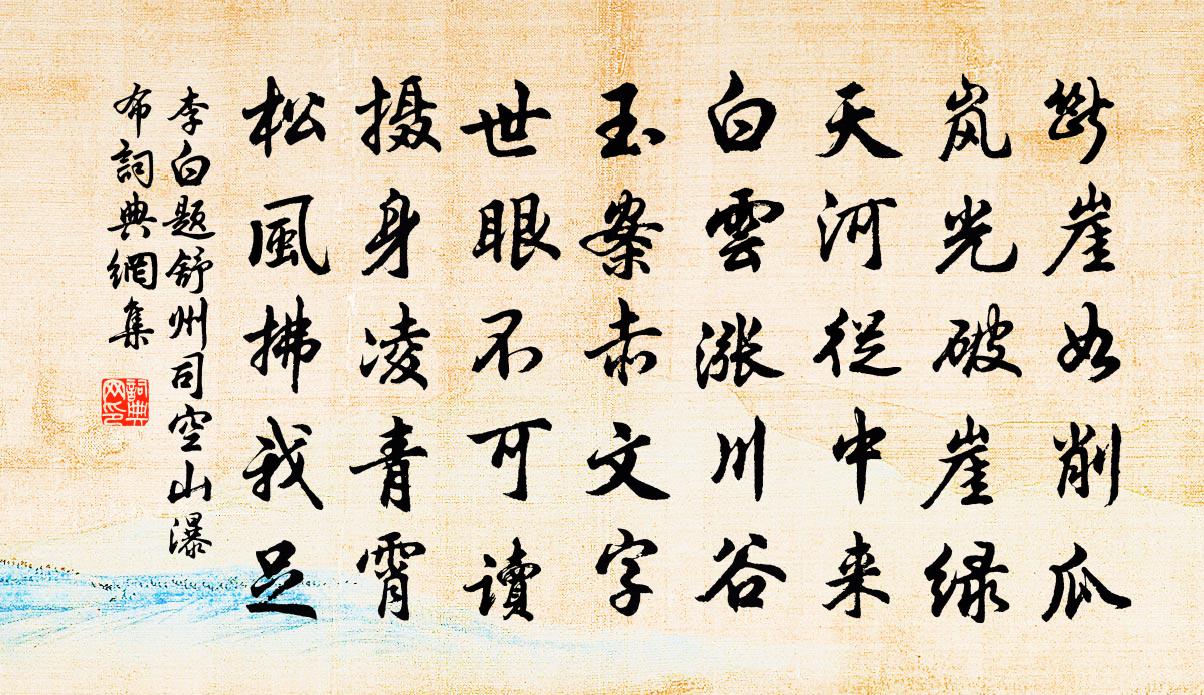 断崖如削瓜
岚光破崖绿
天河從中来
白雲漲川谷
玉案赤文字
世眼不可讀
摄身凌青霄
松風拂我足
李白题舒州司空山瀑
布詞典網集
詞典网印